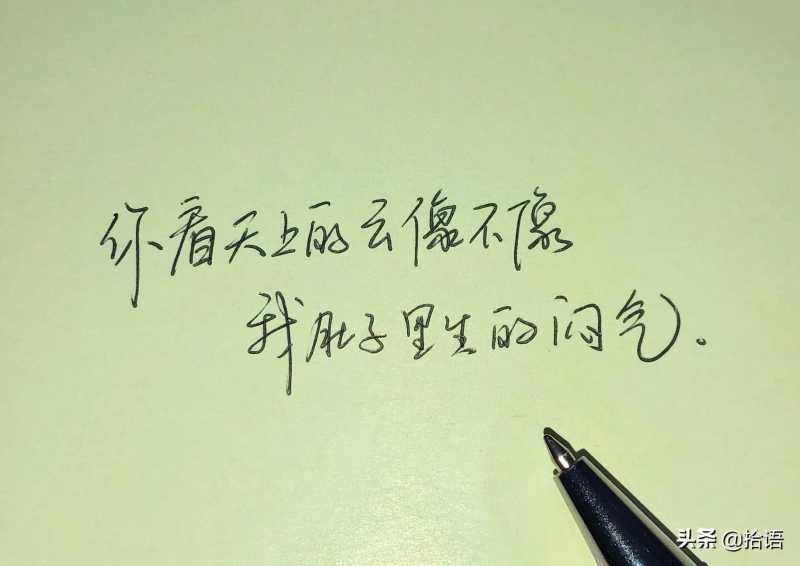 你看天上的云像不像
我肚子里生的闷气.
头条 @拾语